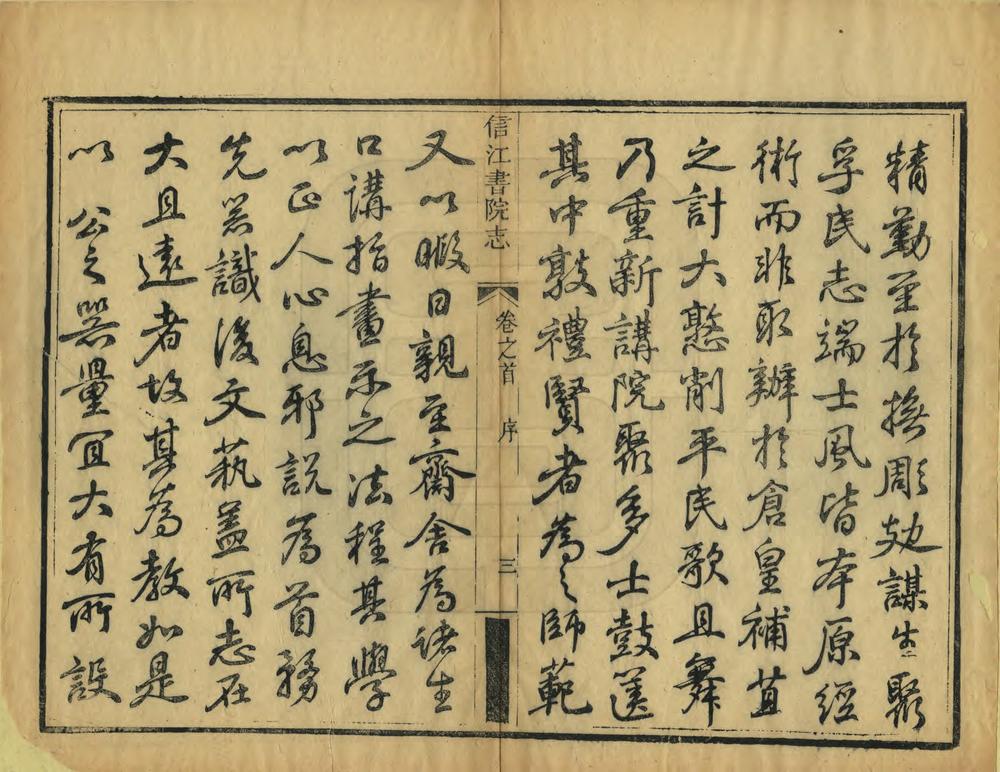 精勤至於撫彫攰謀生聚
孚民志端士風皆本原經
術而非取辦於倉皇補苴
之計大憝削平民歌且舞
乃重新講院聚多士鼓篋
其中敦禮賢者為之師範
信江書院志 卷之首 序 三
又以暇日親至齋舍為諸生
口講指畫示之法程其學
以正人心息邪説為首務
先器識後文藝蓋所志在
大且遠者故其為教如是
以 公之器量宜大有所設